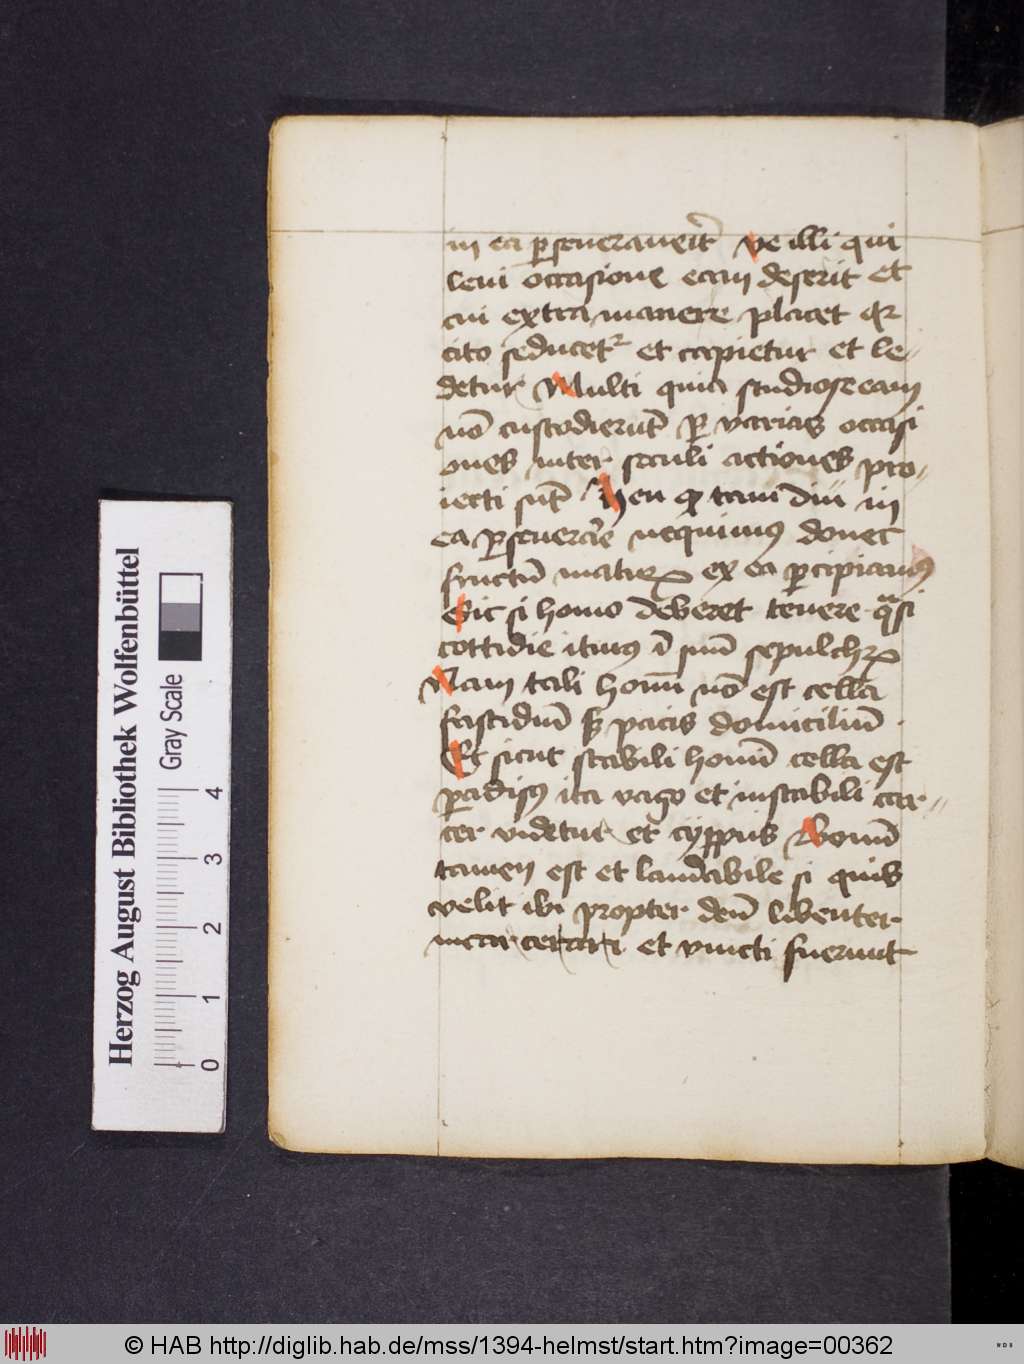 in ea ꝑseueraueit᷑ ve illi qui
leui occasione eam deserit et
cui extra manere placet qꝛ
cito seducet᷑ et capietur et le⸗
detur Multi quia studiose eam
nō custodierūt ꝑ varias occasi
ones inter seculi actiones pro⸗
iecti sūt Heu ꝙ tam diu in
ea ꝑseuerare nequimꝰ donec
fructū maturū ex ea ꝑcipiamꝰ
Sic si homo deberet tenere qͣsi
cottidie iturꝰ ī suū sepulchrū
Nam tali homī nō est cella
fastidiū sꝫ pacis domiciliū .
Et sicut stabili homī cella est
ꝑadisꝰ ita vago et instabili car⸗
cer videtur et cyppus Bonū
tamen est et laudabile si quis
velit ibi propter deū libenter
incarcerari et vincti fuerunt
Herzog August Bibliothek Wolfenbüttel
Gray Scale
0 1 2 3 4
© HAB http://diglib.hab.de/mss/1394-helmst/start.htm?image=00362